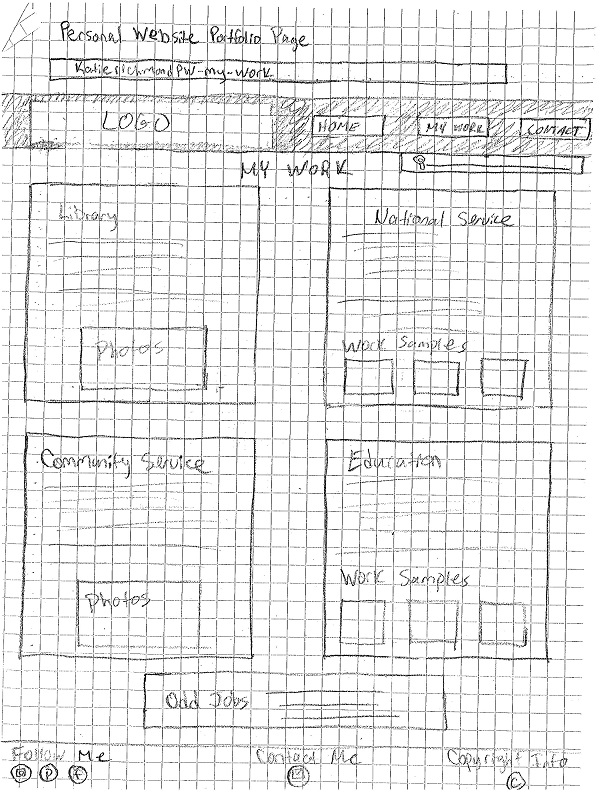 Personal Website Portfolio Page
KatierichmondPW-my-work
LOGO
HOME
MY WORK
CONTACT
MY WORK
Library
Photos
National Service
Work Samples
Community Service
Photos
Education
Work Samples
Odd Jobs
Follow Me
Contact Me
Copyright Info
P f
C